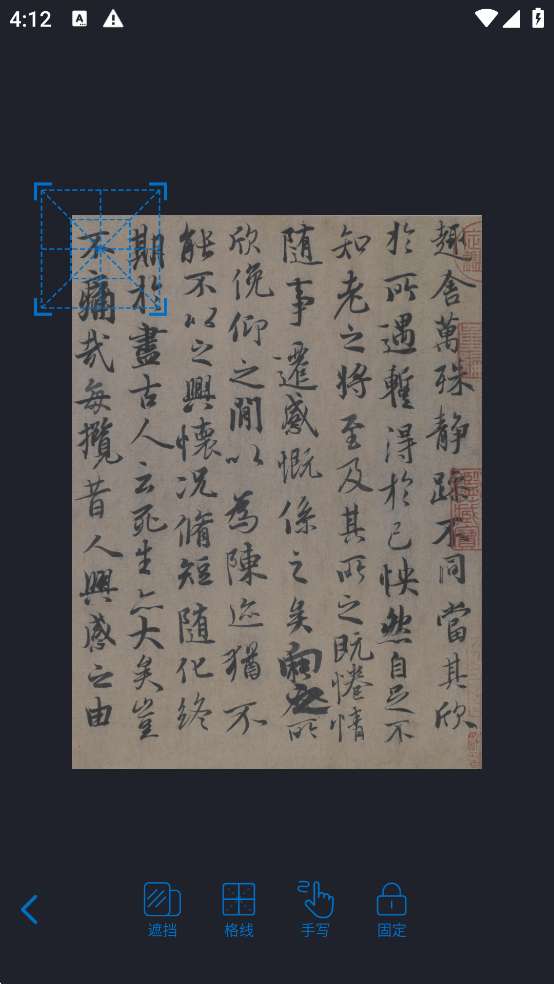 4:12
趣舍萬殊静躁不同當其欣
於所遇蹔得於己怏然自足不
知老之將至及其所之既惓情
随事遷感慨係之矣向之所
欣俛仰之閒以為陳迹猶不
能不以之興懷況脩短随化終
期於盡古人云死生亦大矣豈
不痛哉每攬昔人興感之由
遮挡 格线 手写 固定